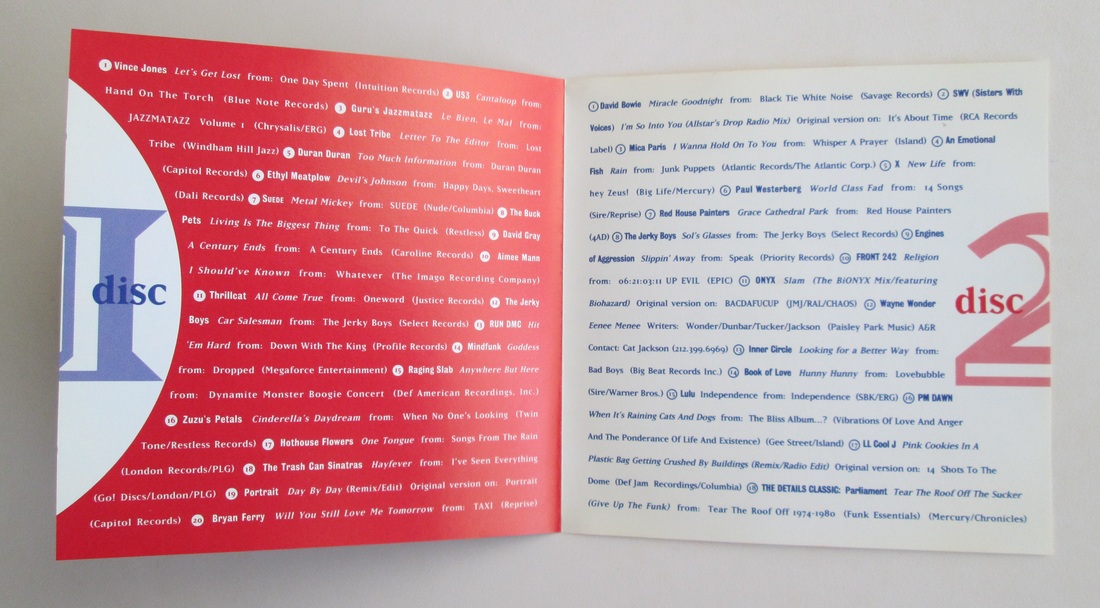 ① Vince Jones Let's Get Lost from: One Day Spent (Intuition Records) ② US3 Cantaloop from:
Hand On The Torch (Blue Note Records) ③ Guru's Jazzmatazz Le Bien, Le Mal from:
JAZZMATAZZ Volume 1 (Chrysalis/ERG) ④ Lost Tribe Letter To The Editor from: Lost
Tribe (Windham Hill Jazz) ⑤ Duran Duran Too Much Information from: Duran Duran
(Capitol Records) ⑥ Ethyl Meatplow Devil's Johnson from: Happy Days, Sweetheart
(Dali Records) ⑦ SUEDE Metal Mickey from: SUEDE (Nude/Columbia) ⑧ The Buck
Pets Living Is The Biggest Thing from: To The Quick (Restless) ⑨ David Gray
A Century Ends from: A Century Ends (Caroline Records) ⑩ Aimee Mann
I Should've Known from: Whatever (The Imago Recording Company)
⑪ Thrillcat All Come True from: Oneword (Justice Records) ⑫ The Jerky
Boys Car Salesman from: The Jerky Boys (Select Records) ⑬ RUN DMC Hit
'Em Hard from: Down With The King (Profile Records) ⑭ Mindfunk Goddess
from: Dropped (Megaforce Entertainment) ⑮ Raging Slab Anywhere But Here
from: Dynamite Monster Boogie Concert (Def American Recordings, Inc.)
⑯ Zuzu's Petals Cinderella's Daydream from: When No One's Looking (Twin
Tone/Restless Records) ⑰ Hothouse Flowers One Tongue from: Songs From The Rain
(London Records/PLG) ⑱ The Trash Can Sinatras Hayfever from: I've Seen Everything
(Go! Discs/London/PLG) ⑲ Portrait Day By Day (Remix/Edit) Original version on: Portrait
(Capitol Records) ⑳ Bryan Ferry Will You Still Love Me Tomorrow from: TAXI (Reprise)
1
disc
① David Bowie Miracle Goodnight from: Black Tie White Noise (Savage Records) ② SWV (Sisters With
Voices) I'm So Into You (Allstar's Drop Radio Mix) Original version on: It's About Time (RCA Records
Label) ③ Mica Paris I Wanna Hold On To You from: Whisper A Prayer (Island) ④ An Emotional
Fish Rain from: Junk Puppets (Atlantic Records/The Atlantic Corp.) ⑤ X New Life from:
hey Zeus! (Big Life/Mercury) ⑥ Paul Westerberg World Class Fad from: 14 Songs
(Sire/Reprise) ⑦ Red House Painters Grace Cathedral Park from: Red House Painters
(4AD) ⑧ The Jerky Boys Sol's Glasses from: The Jerky Boys (Select Records) ⑨ Engines
of Aggression Slippin' Away from: Speak (Priority Records) ⑩ FRONT 242 Religion
from: 06:21:03:11 UP EVIL (EPIC) ⑪ ONYX Slam (The BiONYX Mix/featuring
Biohazard) Original version on: BACDAFUCUP (JMJ/RAL/CHAOS) ⑫ Wayne Wonder
Eenee Menee Writers: Wonder/Dunbar/Tucker/Jackson (Paisley Park Music) A&R
Contact: Cat Jackson (212.399.6969) ⑬ Inner Circle Looking for a Better Way from:
Bad Boys (Big Beat Records Inc.) ⑭ Book of Love Hunny Hunny from: Lovebubble
(Sire/Warner Bros.) ⑮ Lulu Independence from: Independence (SBK/ERG) ⑯ PM DAWN
When It's Raining Cats And Dogs from: The Bliss Album...? (Vibrations Of Love And Anger
And The Ponderance Of Life And Existence) (Gee Street/Island) ⑰ LL Cool J Pink Cookies In A
Plastic Bag Getting Crushed By Buildings (Remix/Radio Edit) Original version on: 14 Shots To The
Dome (Def Jam Recordings/Columbia) ⑱ THE DETAILS CLASSIC: Parliament Tear The Roof Off The Sucker
(Give Up The Funk) from: Tear The Roof Off 1974-1980 (Funk Essentials) (Mercury/Chronicles)
2
disc